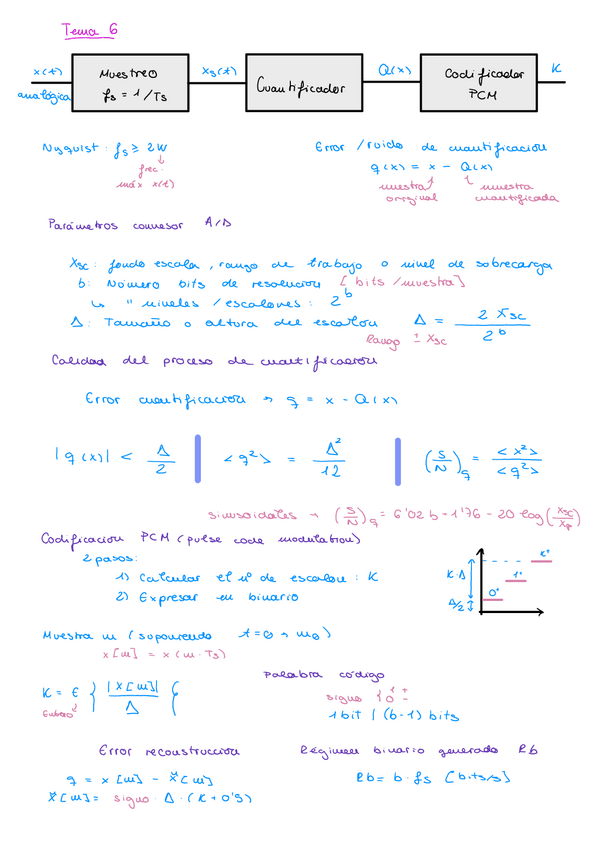 Tema 6
x(t) Muestreo xs(t) Cuantificador Q(x) Codificador K
analógica fs = 1/Ts PCM
Nyquist: fs ≥ 2W
frec.
máx x(t)
Error / ruido de cuantificación
q(x) = x - Q(x)
muestra original muestra cuantificada
Parámetros conversor A/D
Xsc: fondo escala, rango de trabajo o nivel de sobrecarga
b: Número bits de resolución [bits/muestra]
↳ " niveles / escalones: 2^b
Δ: Tamaño o altura del escalón Δ = 2 Xsc / 2^b
Rango ± Xsc
Calidad del proceso de cuantificación
Error cuantificación → q = x - Q(x)
|q(x)| < Δ/2 | <q²> = Δ²/12 | (S/N)q = <x²>/<q²>
sinusoidales → (S/N)q = 6'02 b - 1'76 - 20 log(Xsc/Xp)
Codificación PCM (pulse code modulation)
2 pasos:
1) Calcular el nº de escalón: K
2) Expresar en binario
K·Δ
Δ/2
0º
1º
Kº
Muestra m (suponiendo t=0 → m0)
x[m] = x(m·Ts)
K = E { |x[m]| / Δ {
Entero
Palabra código
signo { 1 + 0 -
1 bit | (b-1) bits
Error reconstrucción
q = x[m] - x̃[m]
x̃[m] = signo · Δ · (K + 0'5)
Régimen binario generado Rb
Rb = b·fs [bits/s]